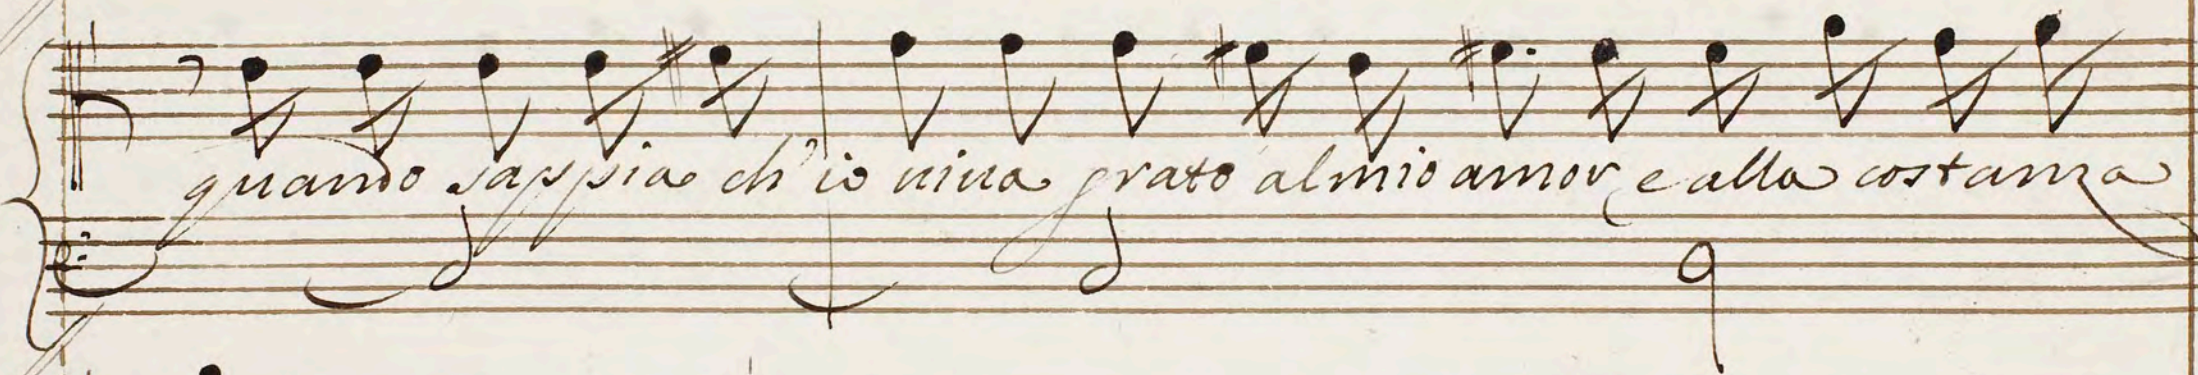 quando sappia ch'io viva grato al mio amor e alla costanza